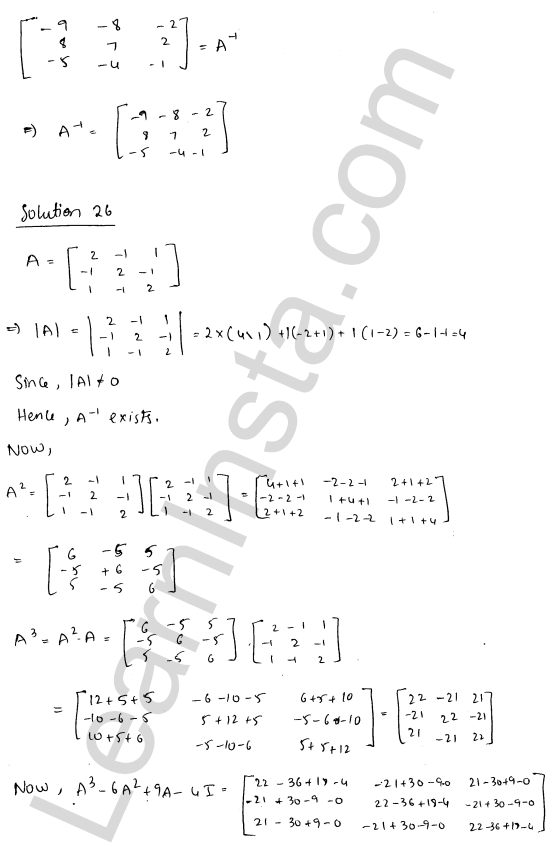 [ -9 -8 -2
8 7 2
-5 -4 -1 ] = A⁻¹
⇒ A⁻¹ = [ -9 -8 -2
8 7 2
-5 -4 -1 ]
Solution 26
A = [ 2 -1 1
-1 2 -1
1 -1 2 ]
⇒ |A| = | 2 -1 1
-1 2 -1
1 -1 2 | = 2×(4\1) + 1(-2+1) + 1(1-2) = 6-1-1=4
Since, |A| ≠ 0
Hence, A⁻¹ exists.
Now,
A² = [ 2 -1 1
-1 2 -1
1 -1 2 ] [ 2 -1 1
-1 2 -1
1 -1 2 ] = [ 4+1+1 -2-2-1 2+1+2
-2-2-1 1+4+1 -1-2-2
2+1+2 -1-2-2 1+1+4 ]
= [ 6 -5 5
-5 +6 -5
5 -5 6 ]
A³ = A²·A = [ 6 -5 5
-5 6 -5
5 -5 6 ] · [ 2 -1 1
-1 2 -1
1 -1 2 ]
= [ 12+5+5 -6-10-5 6+5+10
-10-6-5 5+12+5 -5-6-10
10+5+6 -5-10-6 5+5+12 ] = [ 22 -21 21
-21 22 -21
21 -21 22 ]
Now, A³-6A²+9A-4I = [ 22-36+18-4 -21+30-9-0 21-30+9-0
-21+30-9-0 22-36+18-4 -21+30-9-0
21-30+9-0 -21+30-9-0 22-36+18-4 ]
LearnInsta.com